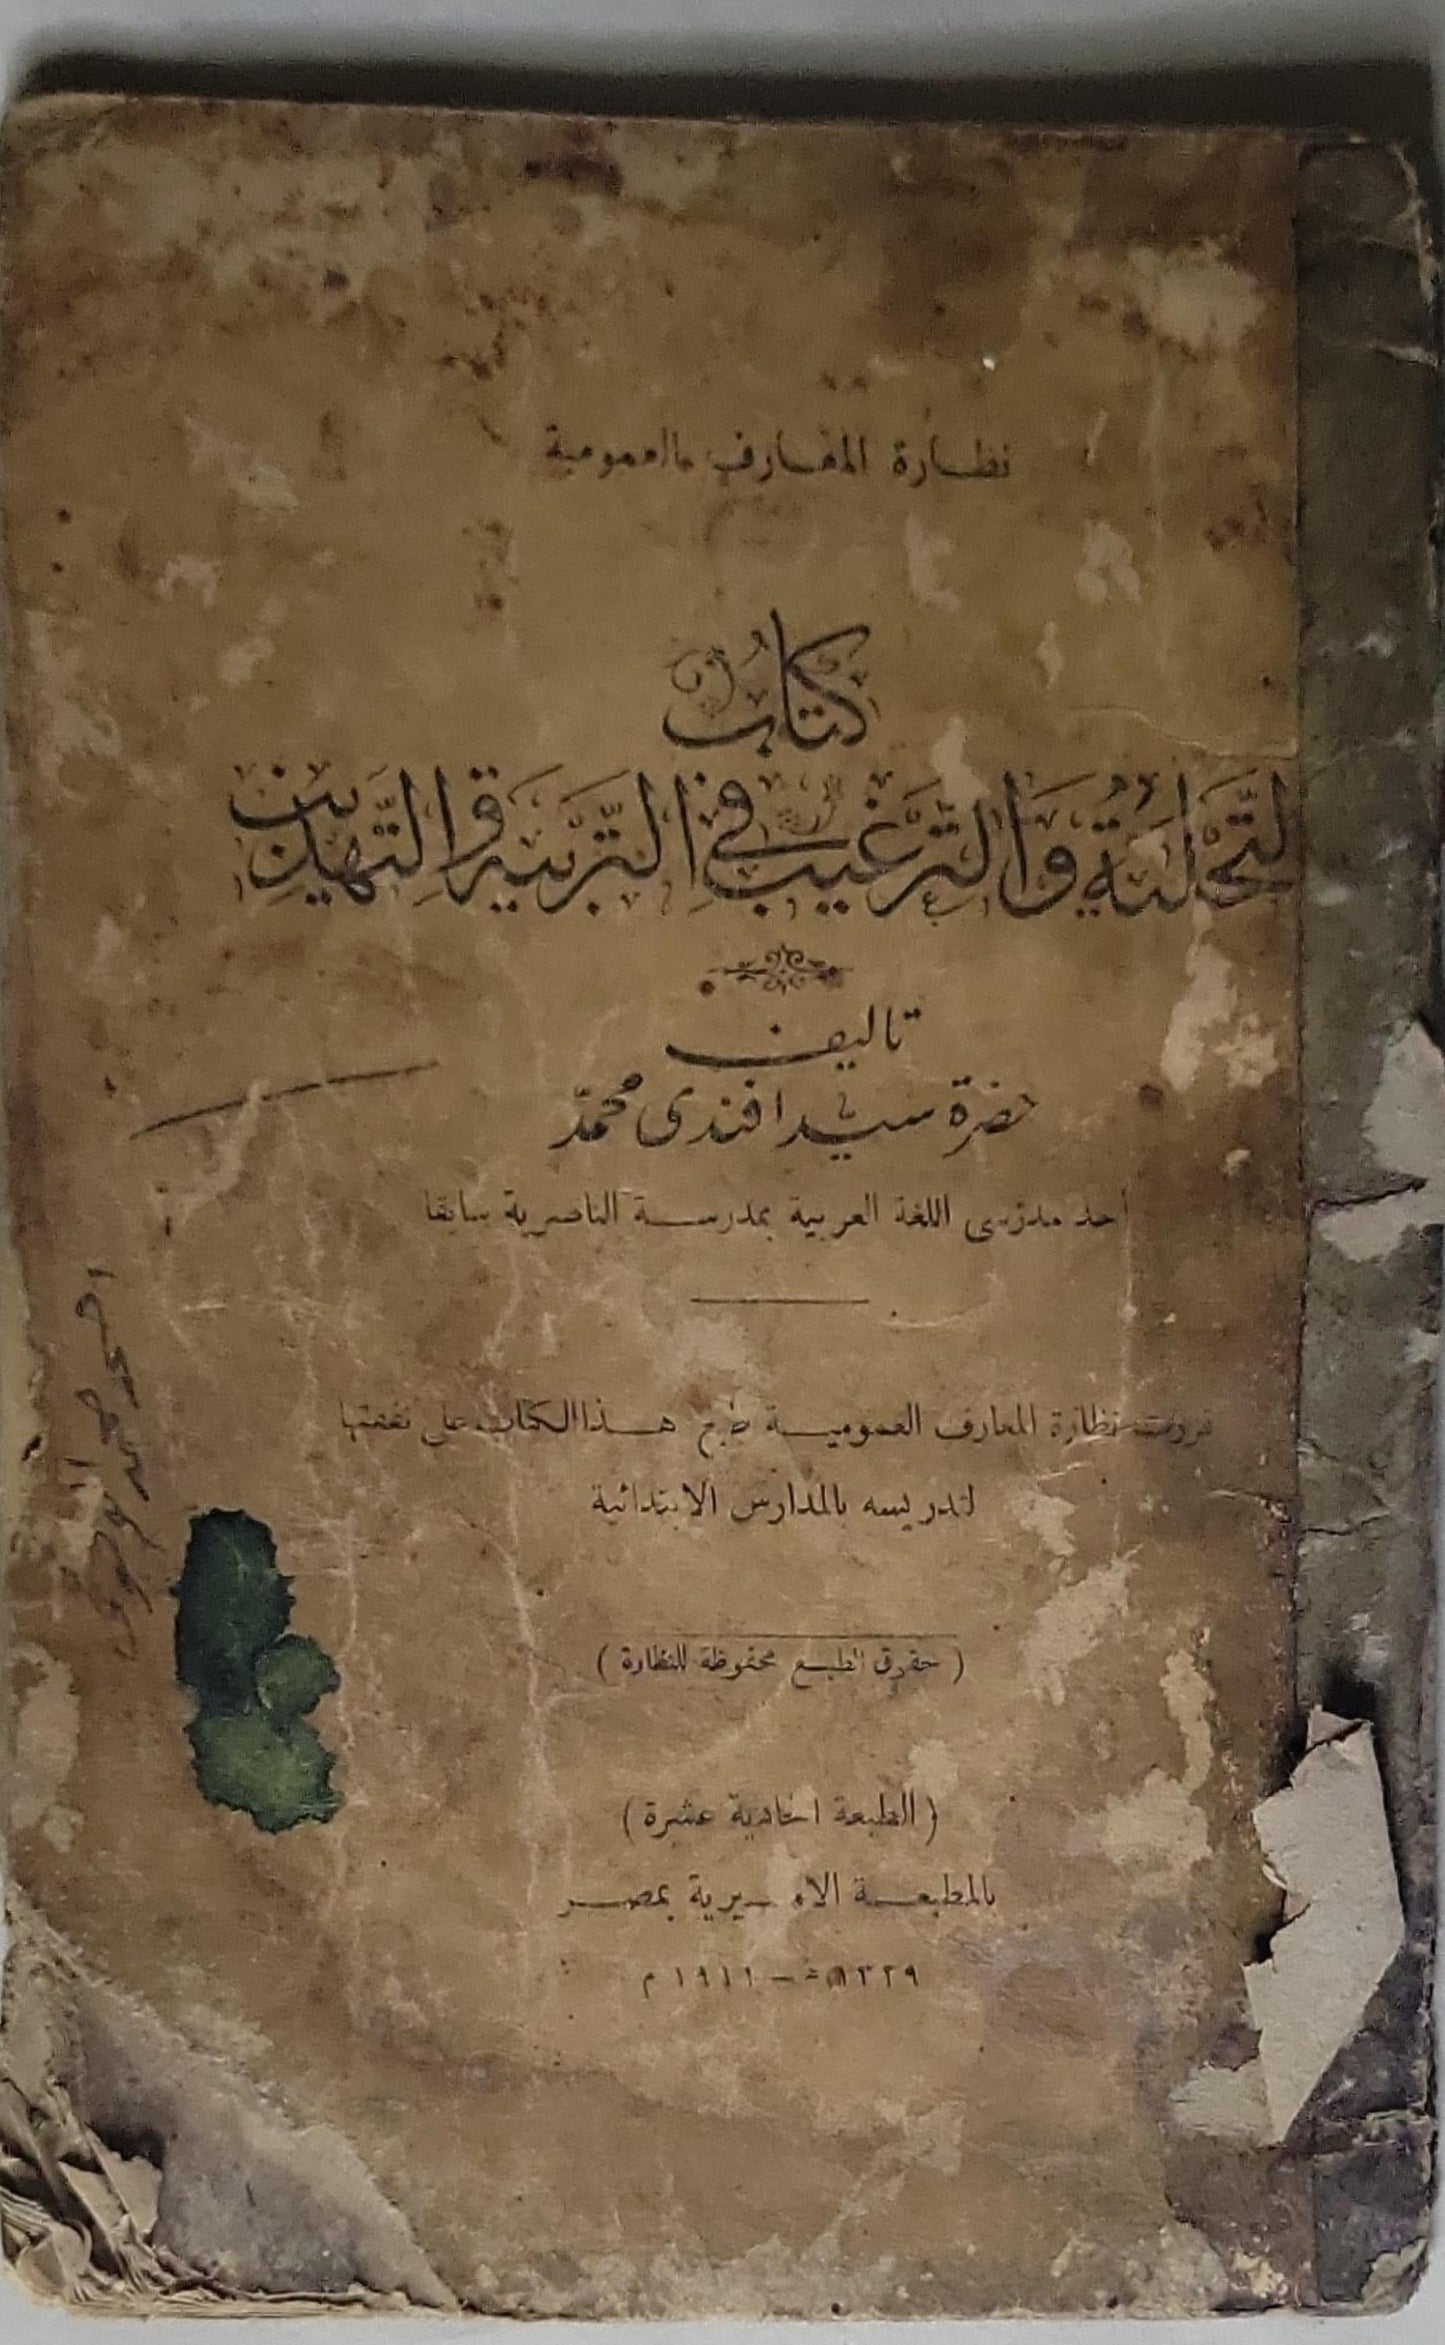 نظارة المعارف العمومية
كتاب
التحلية والترغيب في التربية والتهذيب
تأليف
حضرة سيد افندى محمد
أحد مدرسى اللغة العربية بمدرسة الناصرية سابقا
قررت نظارة المعارف العمومية طبع هذا الكتاب على نفقتها
لتدريسه بالمدارس الابتدائية
( حقوق الطبع محفوظة للنظارة )
( الطبعة الحادية عشرة )
بالمطبعة الاميرية بمصر
١٣٢٩ هـ — ١٩١١ م
احمد حمد